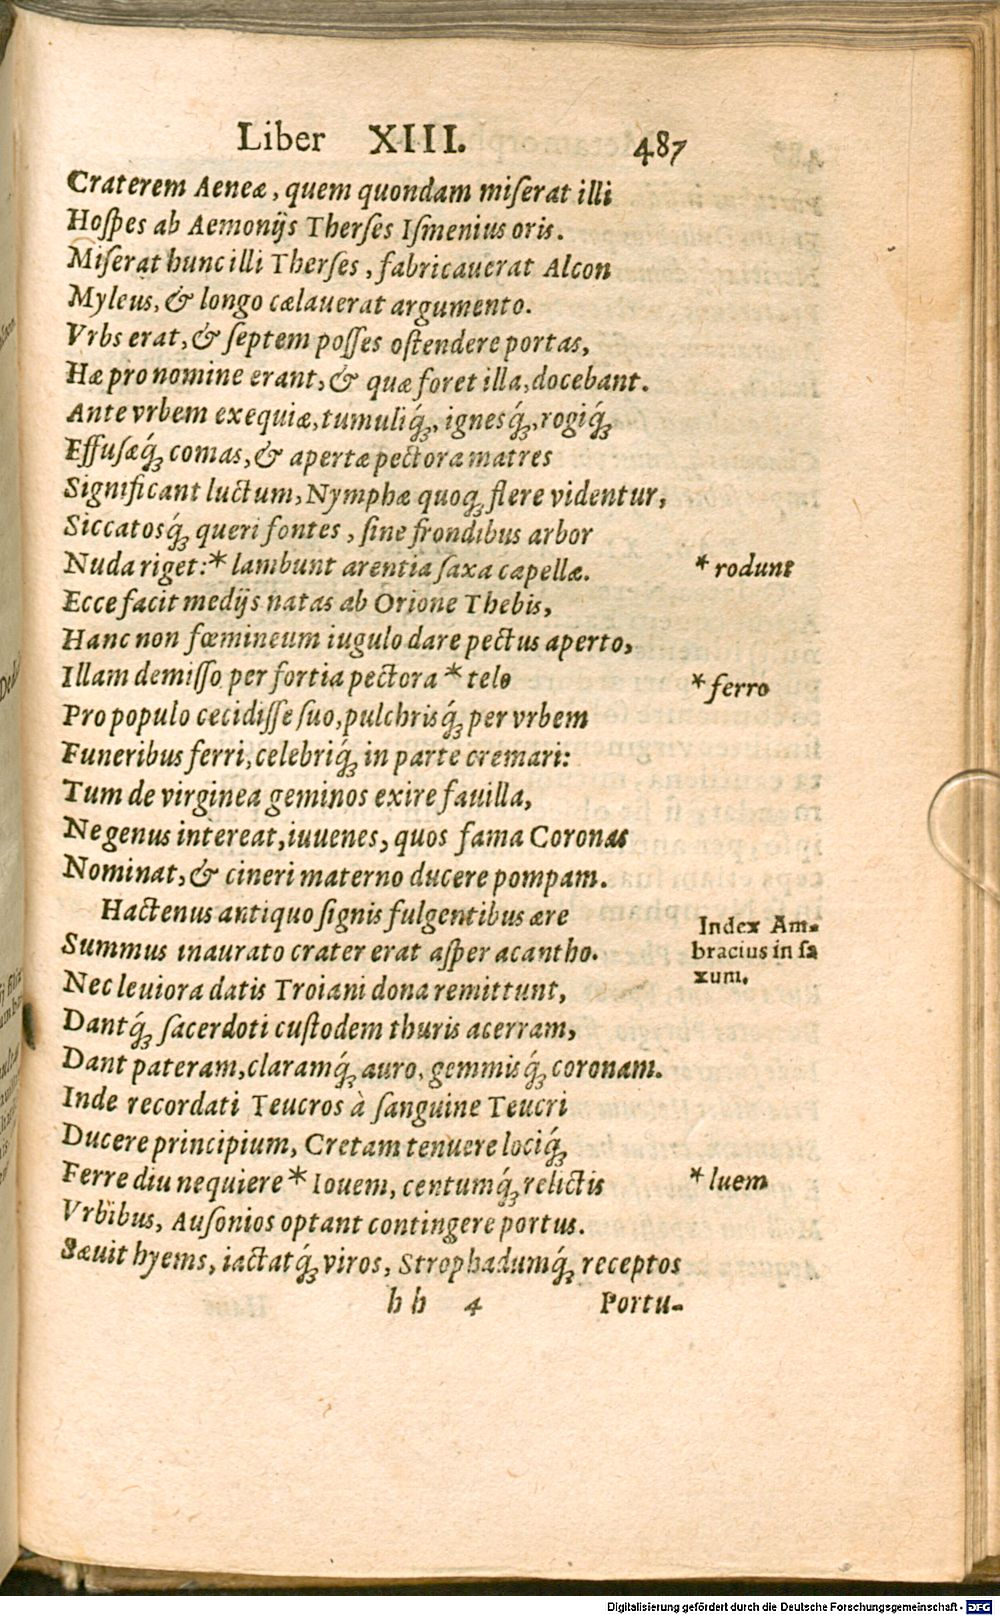 Liber XIII. 487
Craterem Aeneæ, quem quondam miſerat illi
Hoſpes ab Aemonijs Therſes Iſmenius oris.
Miſerat hunc illi Therſes, fabricauerat Alcon
Myleus, & longo cælauerat argumento.
Vrbs erat, & ſeptem poſſes oſtendere portas,
Hæ pro nomine erant, & quæ foret illa, docebant.
Ante vrbem exequiæ, tumuliq́;, ignesq́;, rogiq́;
Effuſæq́; comas, & apertæ pectora matres
Significant luctum, Nymphæ quoq; flere videntur,
Siccatosq́; queri fontes, ſine frondibus arbor
Nuda riget: * lambunt arentia ſaxa capellæ. * rodunt
Ecce facit medijs natas ab Orione Thebis,
Hanc non fœmineum iugulo dare pectus aperto,
Illam demiſſo per fortia pectora * telo * ferro
Pro populo cecidiſſe ſuo, pulchrisq́; per vrbem
Funeribus ferri, celebriq́; in parte cremari:
Tum de virginea geminos exire fauilla,
Ne genus intereat, iuuenes, quos fama Coronas
Nominat, & cineri materno ducere pompam.
Hactenus antiquo ſignis fulgentibus ære
Summus inaurato crater erat aſper acantho.
Index Am-
bracius in ſa
xum.
Nec leuiora datis Troiani dona remittunt,
Dantq́; ſacerdoti cuſtodem thuris acerram,
Dant pateram, claramq́; auro, gemmisq́; coronam.
Inde recordati Teucros à ſanguine Teucri
Ducere principium, Cretam tenuere lociq́;
Ferre diu nequiere * Iouem, centumq́; relictis * luem
Vrbibus, Auſonios optant contingere portus.
Sæuit hyems, iactatq́; viros, Strophadumq́; receptos
h h 4 Portu-
Digitalisierung gefördert durch die Deutsche Forschungsgemeinschaft - DFG